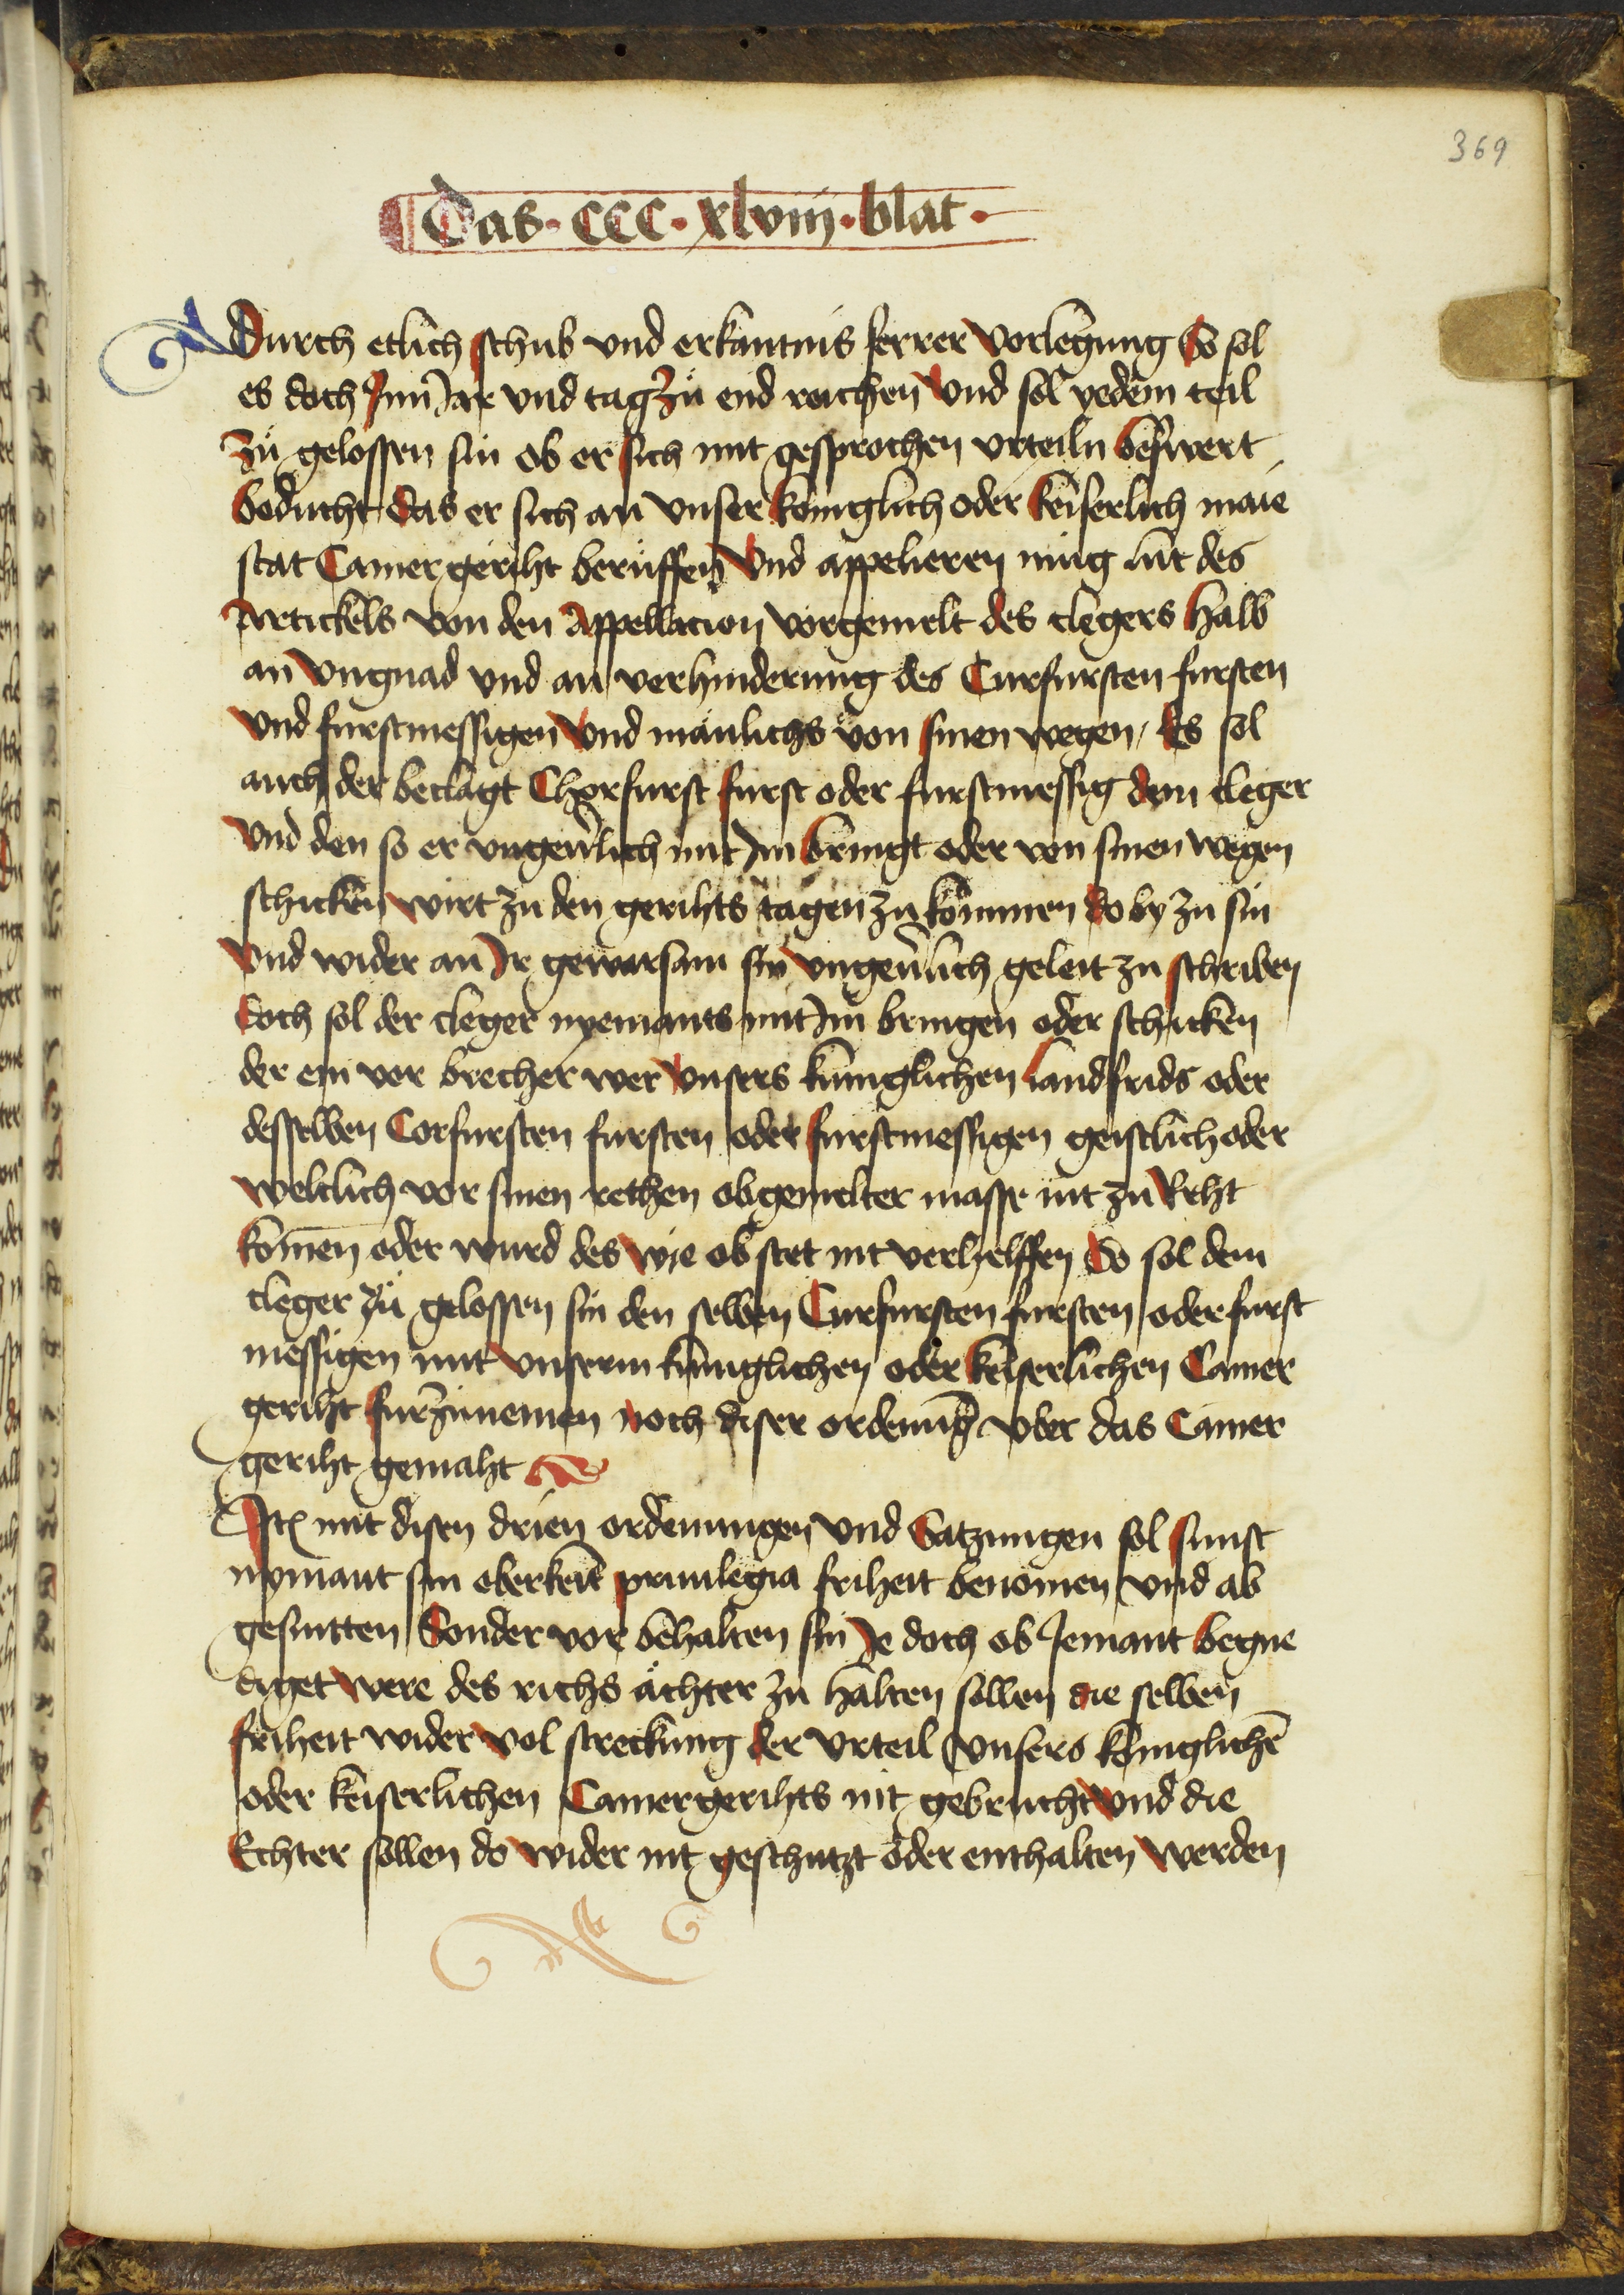 369
Das · CCC · xlviij · blat ·
Durch etlich schub vnd erkantnis ferrer vorlegung So sol
es doch Jnn Jar vnd tag zů end reichen Vnd sol yedem teil
Zů gelossen sin ob er sich mit gesprochen vrteiln beswert
beducht das er sich an vnser koniglich oder keiserlich maie
stat Camer geriht berůffen Vnd appelieren mug lut des
Artickels von den Appellacion vorgemelt des clegers halb
an vngnad vnd an verhinderung des Curfursten fursten
vnd furstmessigen Vnd mänlichs von sinen wegen / Es sol
auch der beclagt Chorfurst furst oder furstmessig dem cleger
Vnd den so er vngeuerlich mit Jm bringt oder von sinen wegen
schicken wirt zu den gerihts tagen zu kommen do by zu sin
Vnd wider an Jr gewarsam sin vngeuerlich geleit zu schriben
doch sol der cleger nyemants mit Jm bringen oder schicken
der ein ver brecher wer Vnsers kuniglichen landfrids oder
desselben Corfursten fursten oder furstmessigen geistlich oder
weltlich vor sinen rethen obgemelter masse nit zu Reht
komen oder wurd des wie ob stet nit verhelffen So sol dem
cleger zů gelossen sin den selben Curfursten fursten oder furst
messigen mit Vnserm kuniglichen oder keiserlichen Camer
geriht furzunemen noch diser ordenung vber das Camer
geriht gemaht
Jtem mit disen drien ordenungen Vnd Satzungen sol sunst
nymant sin oberkeit priuilegia friheit benomen vnd ab
gesnitten Sonder vor behalten sin Je doch ob Jemant begne
diget were des richs ächter zu halten sollen die selben
friheit wider vol streckung der vrteil vnsers koniglichē
oder keiserlichen Camergerihts nit gebrucht Vnd die
Echter sollen do wider nit geschutzt oder enthalten werden